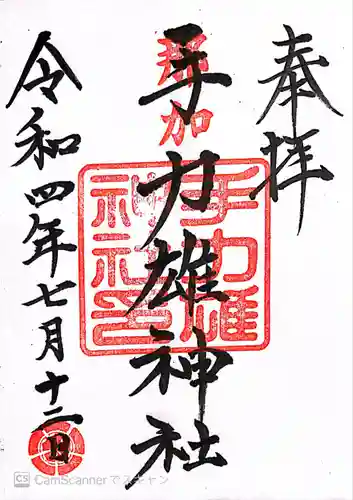 奉拝
那加
手力雄神社
手力雄
神社之
令和四年七月十二日
CS CamScannerでスキャン